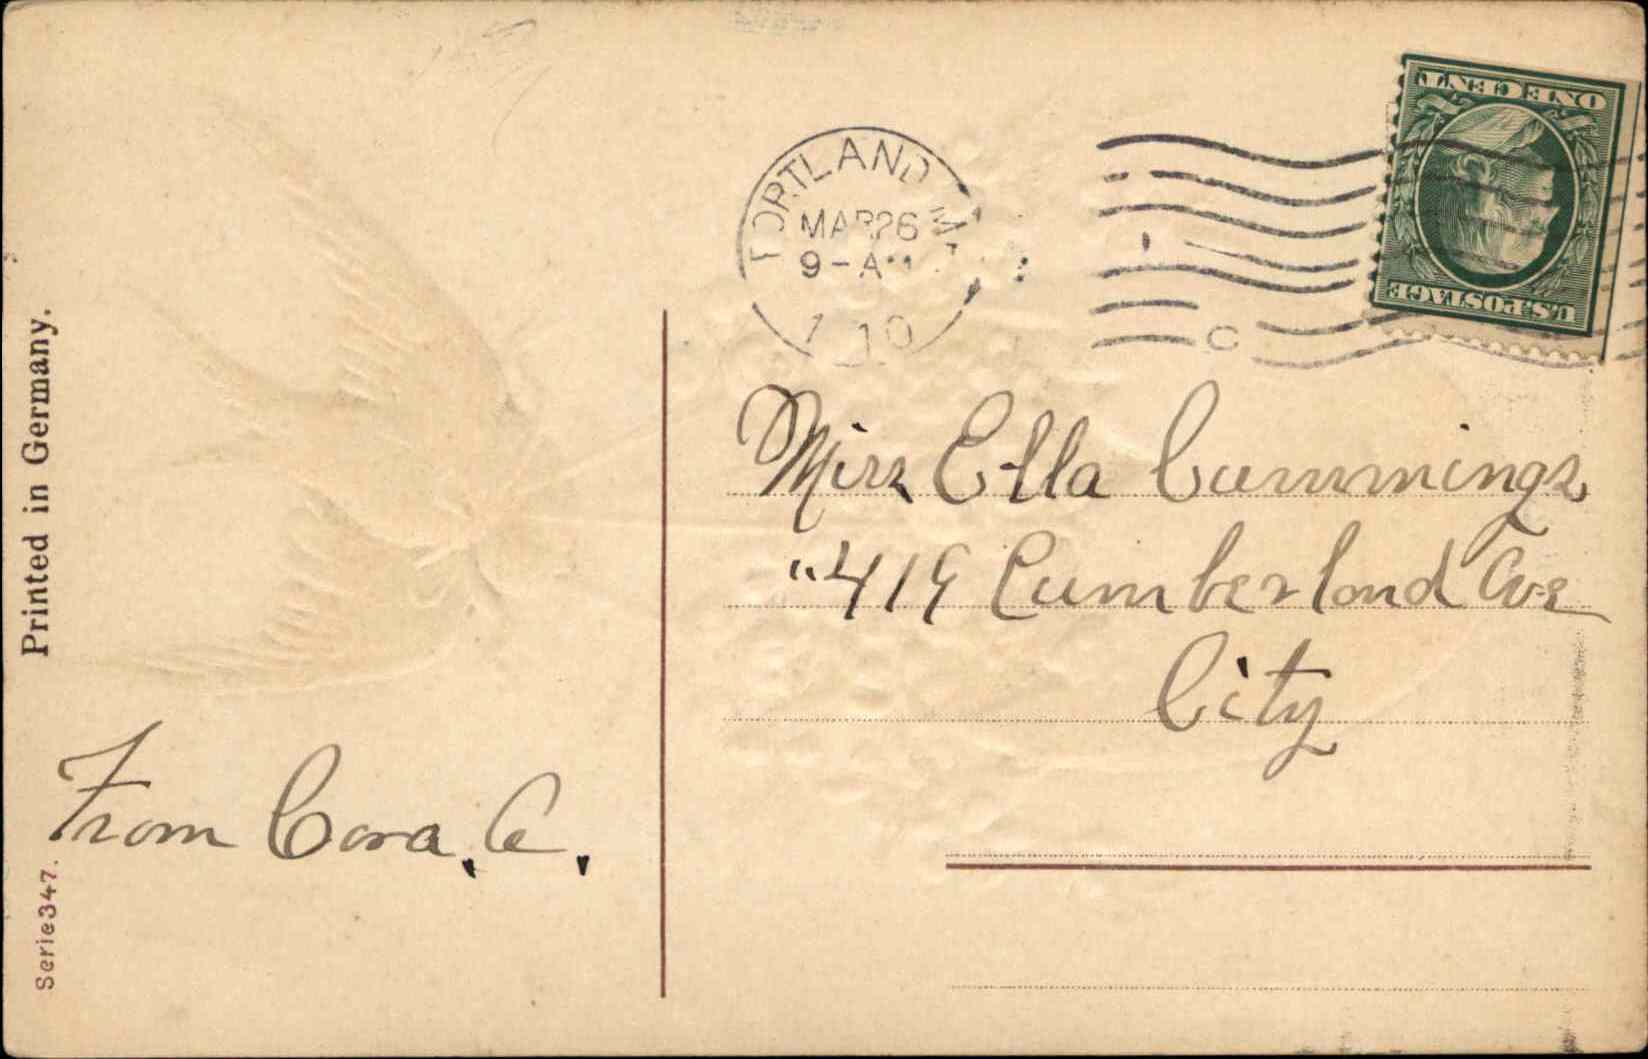 Printed in Germany.
Serie 347.
PORTLAND
MAR 26
9-A
10
ONE CENT
U.S. POSTAGE
Miss Ella Cummings
"419 Cumberland Ave
City
From Cora. C.